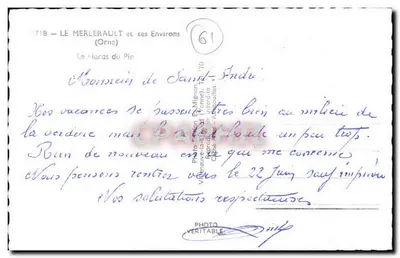 718 - LE MERLERAULT et ses Environs
(Orne)
61
Le Haras du Pin
Monsieur de Saint-André
Nos vacances se passent très bien au milieu de
la verdure mais le soleil boude un peu trop.
Rien de nouveau en ce qui me concerne
Nous pensons rentrer vers le 22 Juin sauf imprévu
Nos salutations respectueuses
PHOTO
VERITABLE